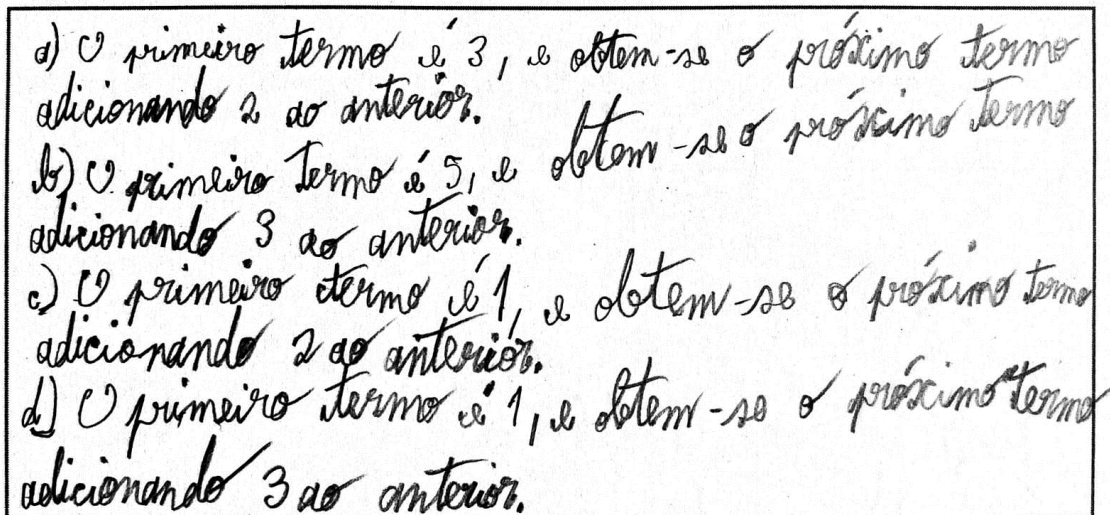 a) O primeiro termo é 3, e obtem-se o próximo termo
adicionando 2 ao anterior.
b) O primeiro termo é 5, e obtem-se o próximo termo
adicionando 3 ao anterior.
c) O primeiro termo é 1, e obtem-se o próximo termo
adicionando 2 ao anterior.
d) O primeiro termo é 1, e obtem-se o próximo termo
adicionando 3 ao anterior.